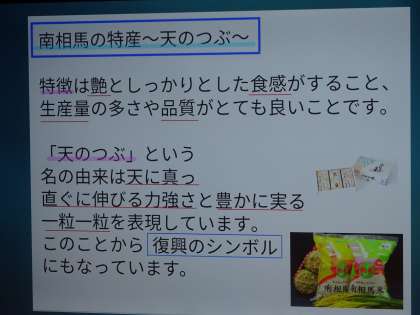 南相馬の特産～天のつぶ～
特徴は艶としっかりとした食感がすること、
生産量の多さや品質がとても良いことです。
「天のつぶ」という
名の由来は天に真っ
直ぐに伸びる力強さと豊かに実る
一粒一粒を表現しています。
このことから 復興のシンボル
にもなっています。